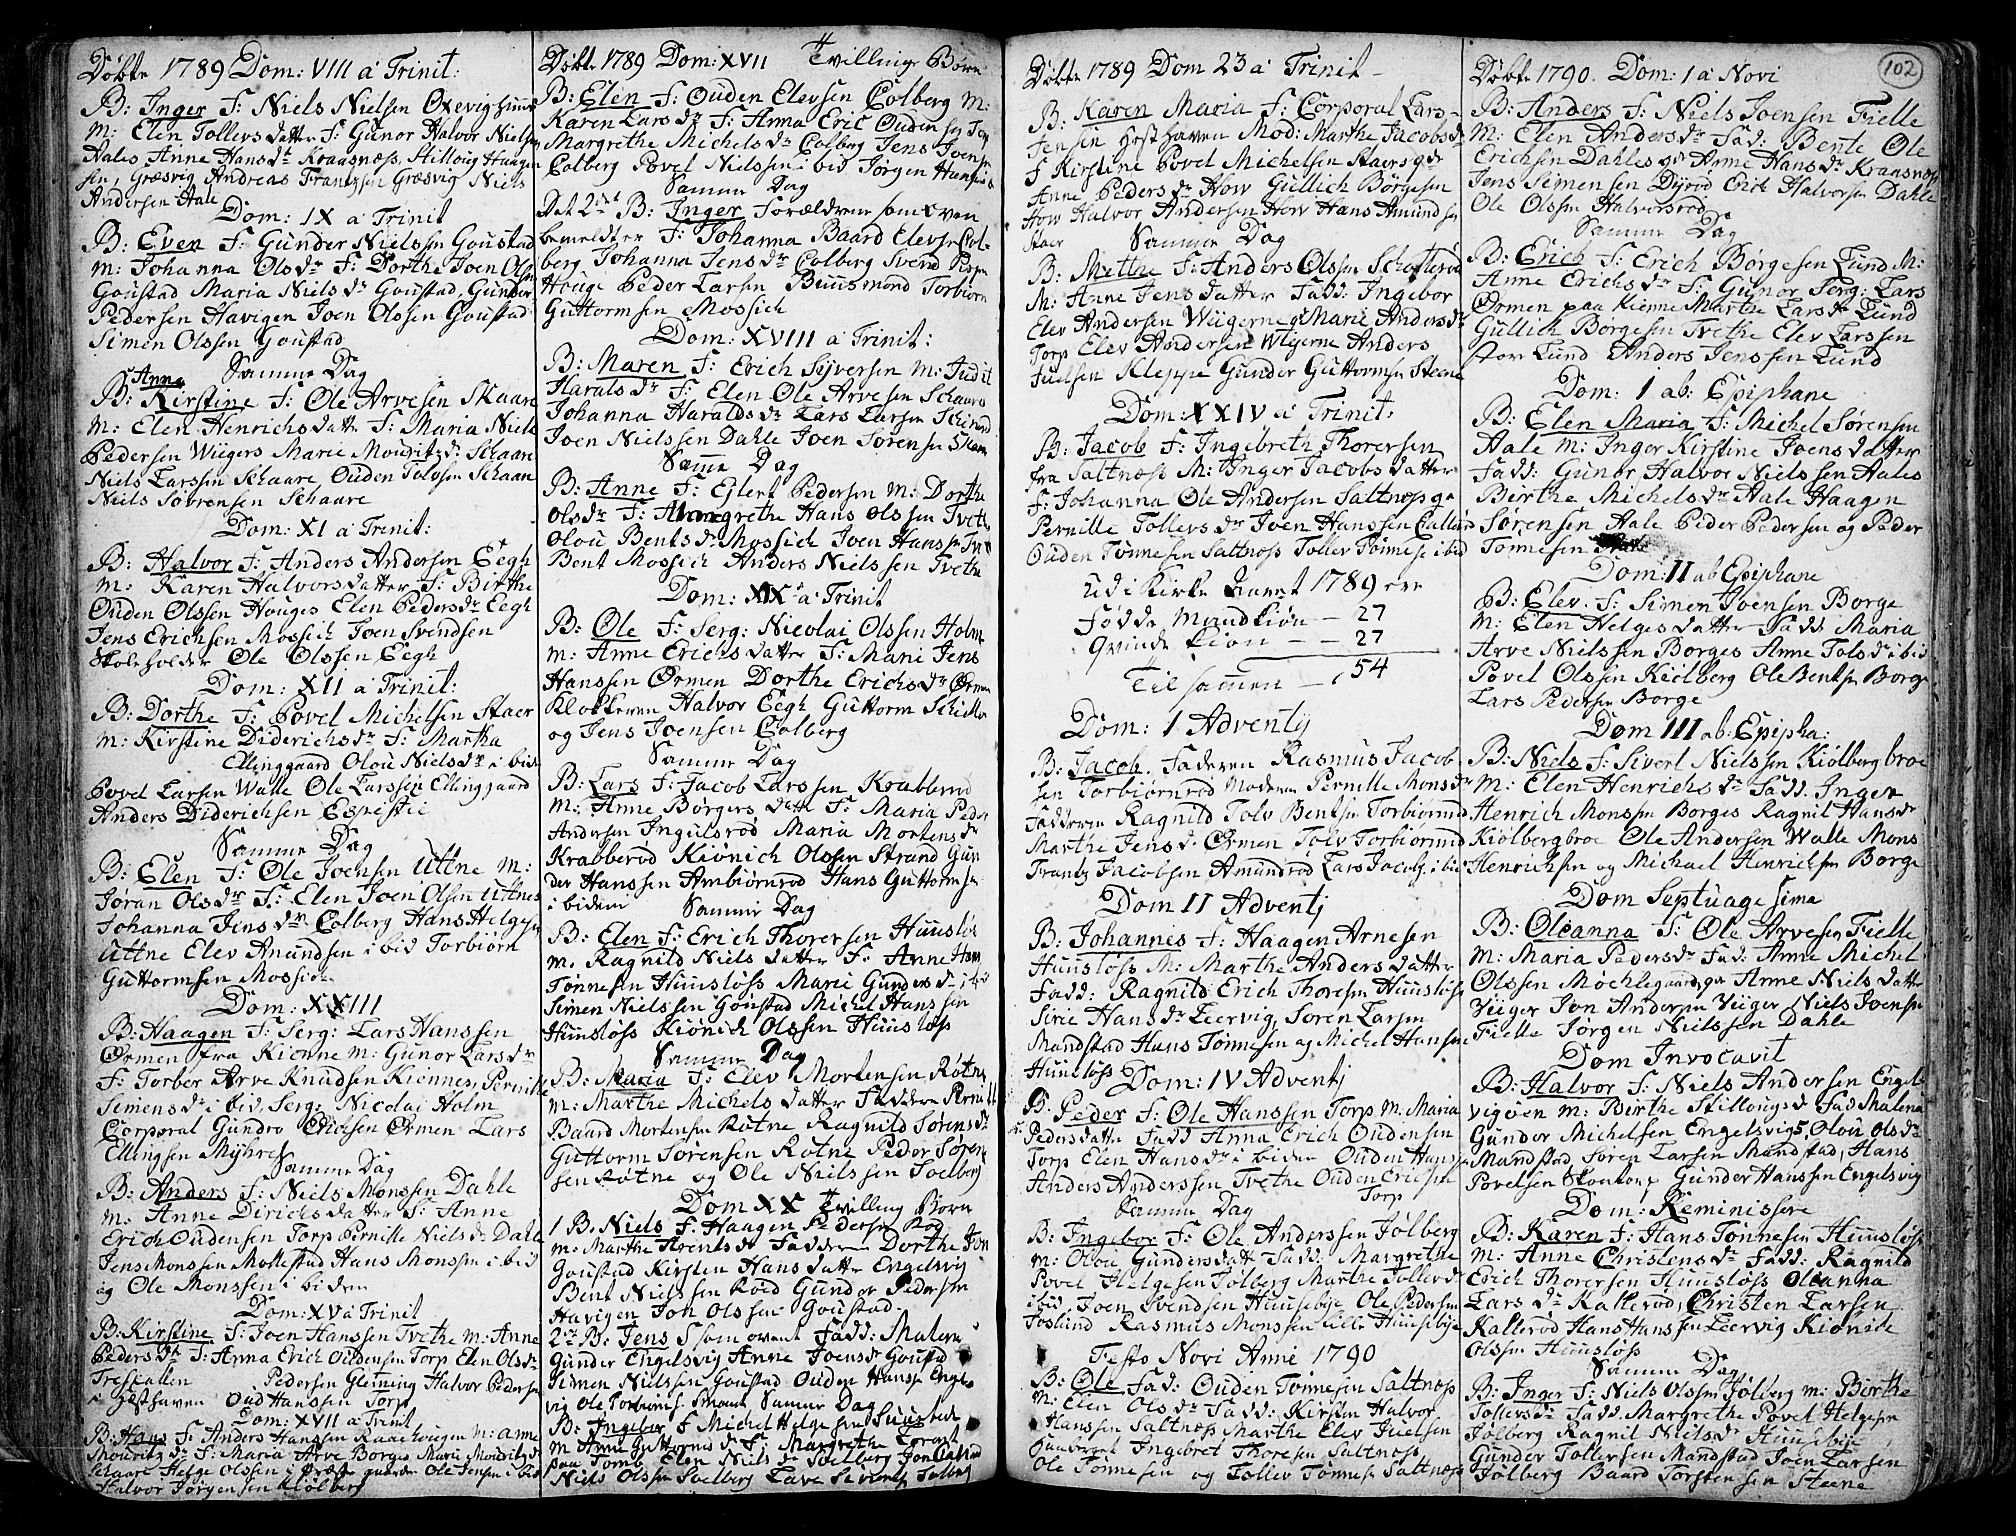 Döbte 1789 Dom: VIII a Trinit:
B: Inger F: Niels Nielsen Oxevig
M: Elen Tollersdatter F: Gunor Halvor Nielsen
Hales Anne Hansdr Kraagnæss, Stilloug Haagen
sen, Græsvig Andreas Frantzsen Græsvig Niels
Andersen Hale
Dom: IX a Trinit
B: Even F: Gunder Nielsen Goustad
M: Johanna Olsdr F: Dorthe Joen Olsen
Goustad Maria Nielsdr Goustad, Gunder
Pedersen Havigen Joen Olssen Goustad
Simen Olssen Goustad
Samme Dag
Anne
B: Kirstine F: Ole Arvesen Skaare
M: Elen Henrichsdatter F: Maria Niels
Pedersen Wiigers Marie Mouritzdr Schaare
Niels Larssen Schaare, Ouden Tolvsen Schaare
Niels Sörensen Schaare
Dom: XI a Trinit:
B: Halvor F: Anders Andersen Eegh
M: Karen Halvorsdatter F: Birthe
Ouden Olssen Houges Elen Pedersdr Eegh
Jens Erichsen Mossich Joen Svendsen
Skoleholder Ole Olssen Eegh
Dom: XII a Trinit:
B: Dorthe F: Povel Michelsen Staer
M: Kirstine Diderichsdr F: Martha
Ellinggaard Olou Nielsdr i bid
Povel Larsen Walle Ole Larssen Ellinggaard
Anders Diderichsen Espestic
Samme Dag
B: Elen F: Ole Joensen Uttne M:
Jøran Olsdr F: Elen Joen Olsen Uttnes
Johanna Jensdr Colberg Hans Helgesen
Uttne Elev Amundsen i bid Torbiörn
Guttormsen Mossich
Dom: XXIII
B: Haagen F: Serg: Lars Hanssen
Ørmen fra Kionne M: Gunor Larsdr
F: Torber Arve Knudsen Kiennes, Pernille
Simensdr i bid, Serg: Nicolai Holm
Corporal Gundro Erichsen Ørmen Lars
Ellingsen Myhre
Samme Dag
B: Anders F: Niels Monssen Dahle
M: Anne Dirichsdatter F: Anne
Erich Oudensen Torp Pernille Nielsdr Dahle
Jens Monssen Mollestad Hans Monssen i bid
og Ole Monssen i bidem
Dom: XV a Trinit
B: Kirstine F: Joen Hanssen Tvethe M: Anne
Pedersdr F: Anna Erich Oudensen Torp Elen Olsdr
Trescallen Pedersen Glemning Halvor Pedersen
i Hesthaven Oud Hanssen Torp
Dom: XVII a Trinit
B: Hans F: Anders Hanssen M: Anne
Mouritzdr F: Maria Arve Borges Marie Mouritzdr
Schaare Helge Olssen Ole Jensen i bid
Halvor Jørgensen Kiölberg
Döbte 1789 Dom: XVII Tvillinge Børn
B: Elen F: Ouden Elevsen Colberg M:
Karen Larsdr F: Anna Eric Oudensen Torp
Margrethe Michelsdr Colberg Jens Joensen
Colberg Povel Nilssen i bid Jørgen
Samme Dag
Det 2det B: Inger Forældrene som oven
bemeldt er F: Johanna Baard Elevsen Col-
berg Johanna Jensdr Colberg Svend
Houge Peder Larsen Buusmond Torbiörn
Guttormsen Mossich
Dom: XVIII a Trinit:
B: Maren F: Erich Syversen M: Judit
Haralsdr F: Elen Ole Arvesen Schaare
Johanna Haraldsdr Lars Larsen
Joen Nielssen Dahle Joen Sørensen
Samme Dag
B: Anne F: Ejlert Pedersen M: Dorthe
Olsdr F: Margrethe Hans Olssen Tvethe
Olou Bentsdr Mossich Joen Hanssen
Bent Mossich Anders Nielssen Tvethe
Dom: XIX a Trinit
B: Ole F: Serg: Nicolai Olssen Holm
M: Anne Erichsdatter F: Mari Jens
Hanssen Ørmen Dorthe Erichsdr Ørmen
Klokkeren Halvor Eegh Guttorm
og Jens Joensen Colberg
Samme Dag
B: Lars F: Jacob Larssen Krabberød
M: Anne Börgersdatter F: Maria Peder
Andersen Ingulsrød Maria Mortensdr
Krabberød Kiönich Olssen Strand Gun
der Hanssen Ambiørnrød Hans Guttormsen
i bidem Samme Dag
B: Elen F: Erich Thoresen Huusløs
M: Ragnild Nielsdatter F: Anne Hans
Tønnesen Huusløss Marie Gundersdr i bid
Simen Nielssen Goustad Michel Hanssen
Huusløss Kiönich Olssen Huusløss
Samme Dag
B: Maria F: Elev Mortensen Røtne
M: Marthe Michelsdatter Faddere Pernill
Baard Mortensen Røtne Ragnild Sørensdr
Guttorm Sørensen Rotne Peder Søren
sen Røtne og Ole Nielssen Soelberg
Dom XX Tvilling Børn
1 B. Niels F: Haagen Pedersen Rød
M: Marthe Arentsdr Faddere Dorthe Jon
Goustad Kirsten Hansdatter Engelsvig
Bent Nielssen Röed Gunder Pedersen
Havigen Jon Olssen Goustad
2de B: Jens som ovent Fadd: Malene
Gunder Engelsvig Anne Joensdr Goustad
Simen Nielssen Goustad Ouden Hanssen Engels
vig Ole Samme Dag
B: Ingebor F: Michel Helgesen
M: Anne Guttormsdr F: Margrethe
paa Tomb Elen Nielsdr Soelberg
Niels Olssen Soelberg Tave
Döbte 1789 Dom 23 a Trinit
B: Karen Maria F: Corporal Lars
Jensen Hesthaven Mod: Marthe Jacobsdr
F Kirstine Povel Michelsen Staers
Anne Pedersdr How Gullich Börgesen
How Halvor Andersen How Hans Amundsen
Staer Samme Dag
B: Methe F: Anders Olssen
M: Anne Jensdatter Fadd: Ingebor
Elev Andersen Wiigerne Marie Andersdr
Torp Elev Andersen Wigerne Anders
Juelsen Kleppe Gunder Guttormsen Steene
Dom: XXIV a Trinit:
B: Jacob F: Ingebreth Thoresen
fra Saltnæss M: Inger Jacobsdatter
F: Johanna Ole Andersen Saltnæss
Pernille Tollersdr Joen Hanssen
Ouden Tønnesen Saltnæss Toller Tønnesen i bid
Udi Kirke Aaret 1789 ere
Fødde Mandkiøn — 27
Qvindekiøn — 27
Til sammen — 54
Dom: I Adventj
B: Jacob. Faderen Rasmus Jacob
sen Torbiörnrød Moderen Pernille Monsdr
Fadderne Ragnild Tolv Bentsen Torbiörnrød
Marthe Jensdr Ørmen Tolv Torbiörnrød
Frantz Jacobsen Amundrød Lars Jacobs. i bid
Dom II Adventj
B: Johannes F: Haagen Arnesen
Huusløss M: Marthe Andersdatter
Fadd: Ragnild Erich Thoresen Huusløss
Sirie Hansdr Leervig, Søren Larsen
Mandstad Hans Tønnesen og Michel Hansen
Huusløss
Dom: IV Adventj
B: Peder F: Ole Hanssen Torp M: Maria
Pedersdatter Fadd Anna Erich Oudensen
Torp Elen Hansdr i bidem Ouden Hanss
Anders Anderssen Tvethe Ouden Ericsen
Torp
Samme Dag
B: Ingebor F: Ole Anderssen Jølberg
M: Olou Gundersdatt Fadd: Margrethe
Povel Helgesen Jølberg Marthe Tollersdr
ibid Joen Svendsen Huusebye Ole Pedersen
Joslund Rasmus Monssen lille Huusebye
Festo Novi Anni 1790
B: Ole Fad: Ouden Tønnesen Saltnæss
M: Elen Olsdr Fadd: Kirsten Halvor
Hanssen Saltnæss Marthe Elev Juelsen
Ingebret Thoresen Saltnæss
Ole Tønnesen og Toller Tønnesen Saltnæss
102
Döbte 1790. Dom: 1 a Novi
B: Anders F: Niels Joensen Fielle
M: Elen Andersdr Fad: Bente Ole
Erichsen Dahles Anne Hansdr Kraagnæss
Jens Simensen Dyrød Erich Halvorsen Dahle
Ole Olssen Halvorsrød
Samme Dag
B: Erich F: Erich Börgesen Lund M:
Anne Erichsdr F: Gunor Serg: Lars
Ørmen paa Kienne Marthe Larsdr Lund
Gullich Borgesen Tvethe Elev Larssen
stor Lund Anders Jenssen Lund
Dom: I ab: Epiphane
B: Elen Maria F: Michel Sørensen
Hale M: Inger Kirstine Joensdatter
Fadd: Gunor Halvor Nielssen Hales
Birthe Michelsdr Hale Haagen
Sørensen Hale Peder Pedersen og Peder
Tønnesen
Dom: II ab Epiphane
B: Elev. F: Simen Joensen Borge
M: Elen Helgesdatter Fadd Maria
Arve Nielssen Borges Anne Tolsdr i bid
Povel Olssen Kiölberg Ole Bentsen Borge
Lars Pedersen Borge
Dom III ab: Epipha:
B: Niels F: Sivert Nielssen Kiölbergbroe
M: Elen Henrichsdr Fadd: Inger
Henrich Monssen Borges Ragnil Hansdr
Kiölbergbroe Ole Andersen Walle Mons
Henrichsen og Michael Henrichsen Borge
Dom Septuagesima
B: Oleanna F: Ole Arvesen Fielle
M: Maria Pedersdr Fad: Anne Michel
Olssen Möchlegaard Anne Nielsdatter
Viiger Jon Andersen Viiger Niels Joensen
Fielle Jörgen Nielssen Dahle
Dom Invocavit
B: Halvor F: Niels Andersen Engels
vigöen M: Birthe Stillougsdr Fad Malena
Gunder Michelsen Engelsvigs, Olou Olsdr
Mandstad Søren Larsen Mandstad, Hans
Povelsen Gunder Hanssen Engelsvig
Dom: Reminissere
B: Karen F: Hans Tønnesen Huusløss
M: Anne Christensdr Fadd: Ragnild
Erich Thoresen Huusløss Oleanna
Larsdr Kallerød, Christen Larsen
Kallerød Hans Hanssen Leervig Kiönich
Olssen Huusløss
Samme Dag
B: Inger F: Niels Olssen Jølberg M: Birthe
Tollersdr Fadd: Margrethe Povel Helgesen
Jølberg Ragnil Nielsdr Huusebye
Gunder Tollefsen Mandstad Joen Larsen
Jølberg Baard Torstensen Steene